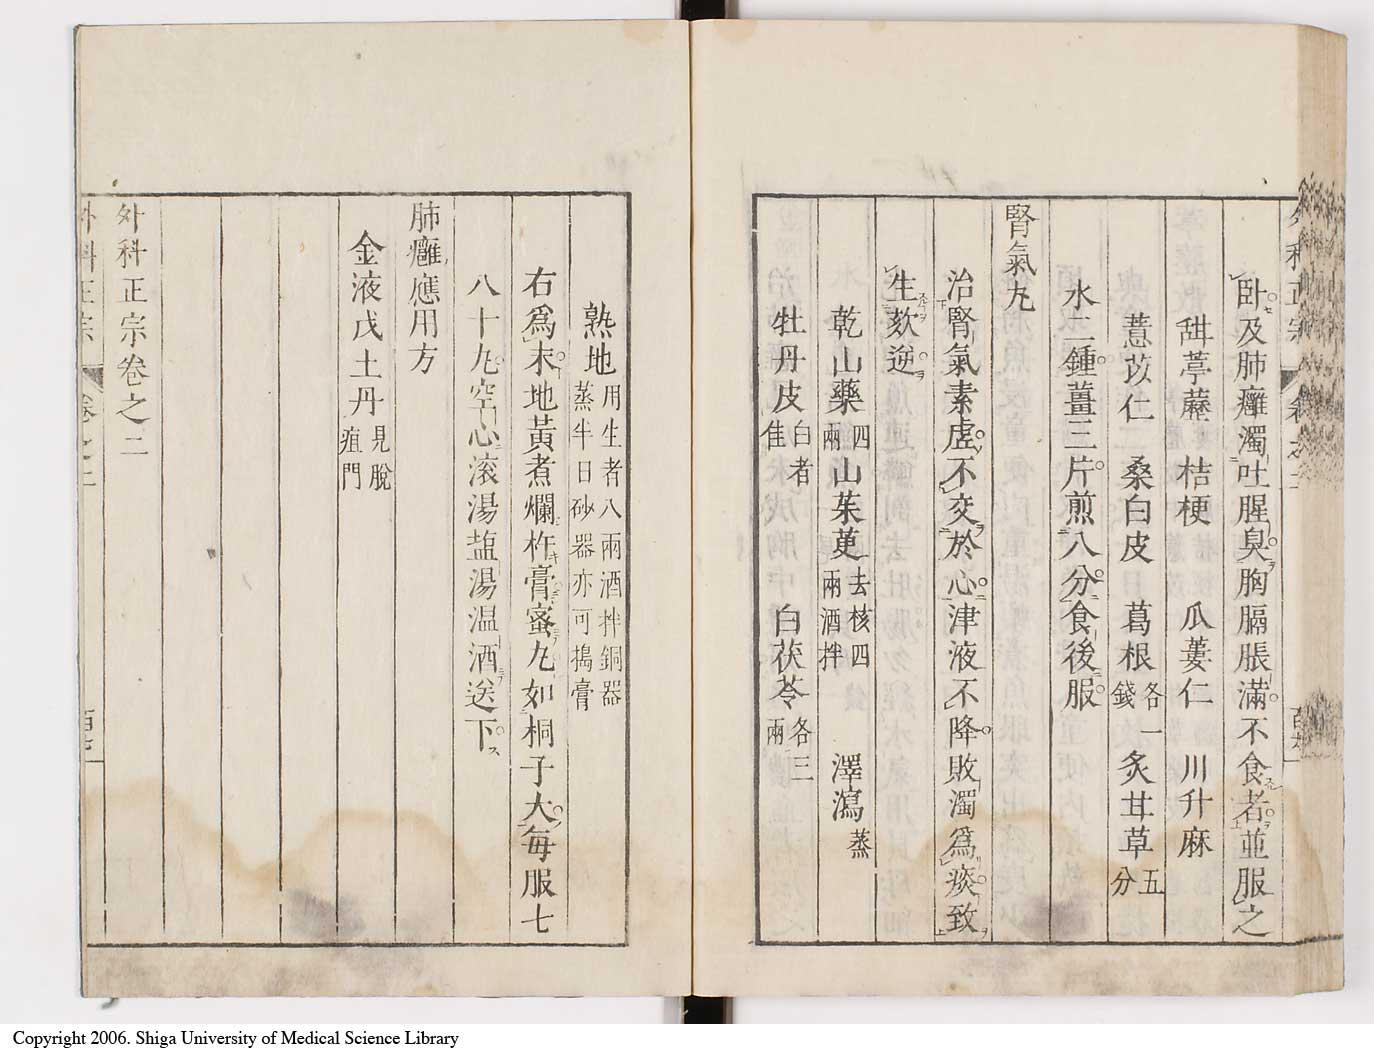 臥及肺癰濁吐腥臭胸膈脹滿不食者並服之
甜葶藶 桔梗 瓜蔞仁 川升麻
薏苡仁 桑白皮 葛根各一錢 炙甘草五分
水二鍾薑三片煎八分食後服
腎氣丸
治腎氣素虛不交於心津液不降敗濁爲痰致
生欬逆
乾山藥四兩 山茱萸去核四兩酒拌 澤瀉蒸
牡丹皮白者佳 白茯苓各三兩
熟地用生者八兩酒拌銅器蒸半日砂器亦可搗膏
右爲末地黃煮爛杵膏蜜丸如桐子大每服七
八十丸空心滾湯鹽湯温酒送下
肺癰應用方
金液戊土丹見脫疽門
外科正宗卷之二
Copyright 2006. Shiga University of Medical Science Library